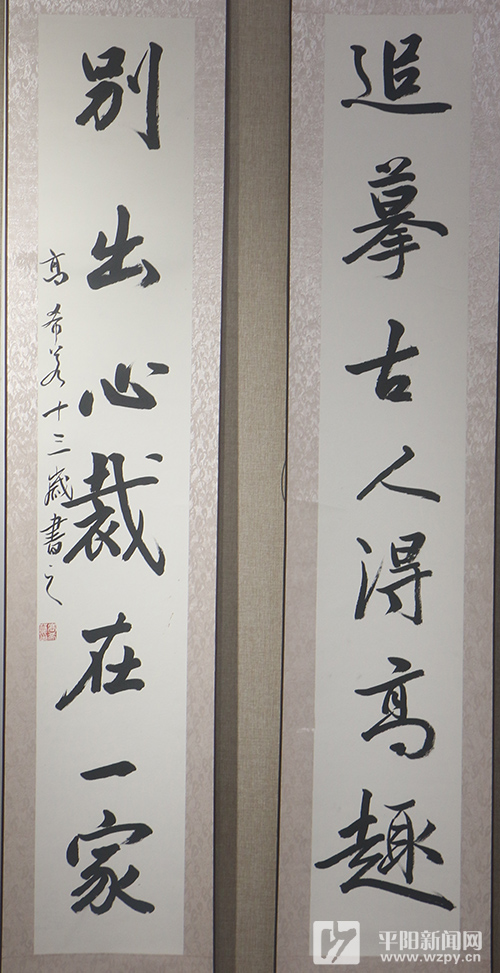 追摹古人得高趣
别出心裁在一家
高希若十三歲書之
平阳新闻网
www.wzpy.cn